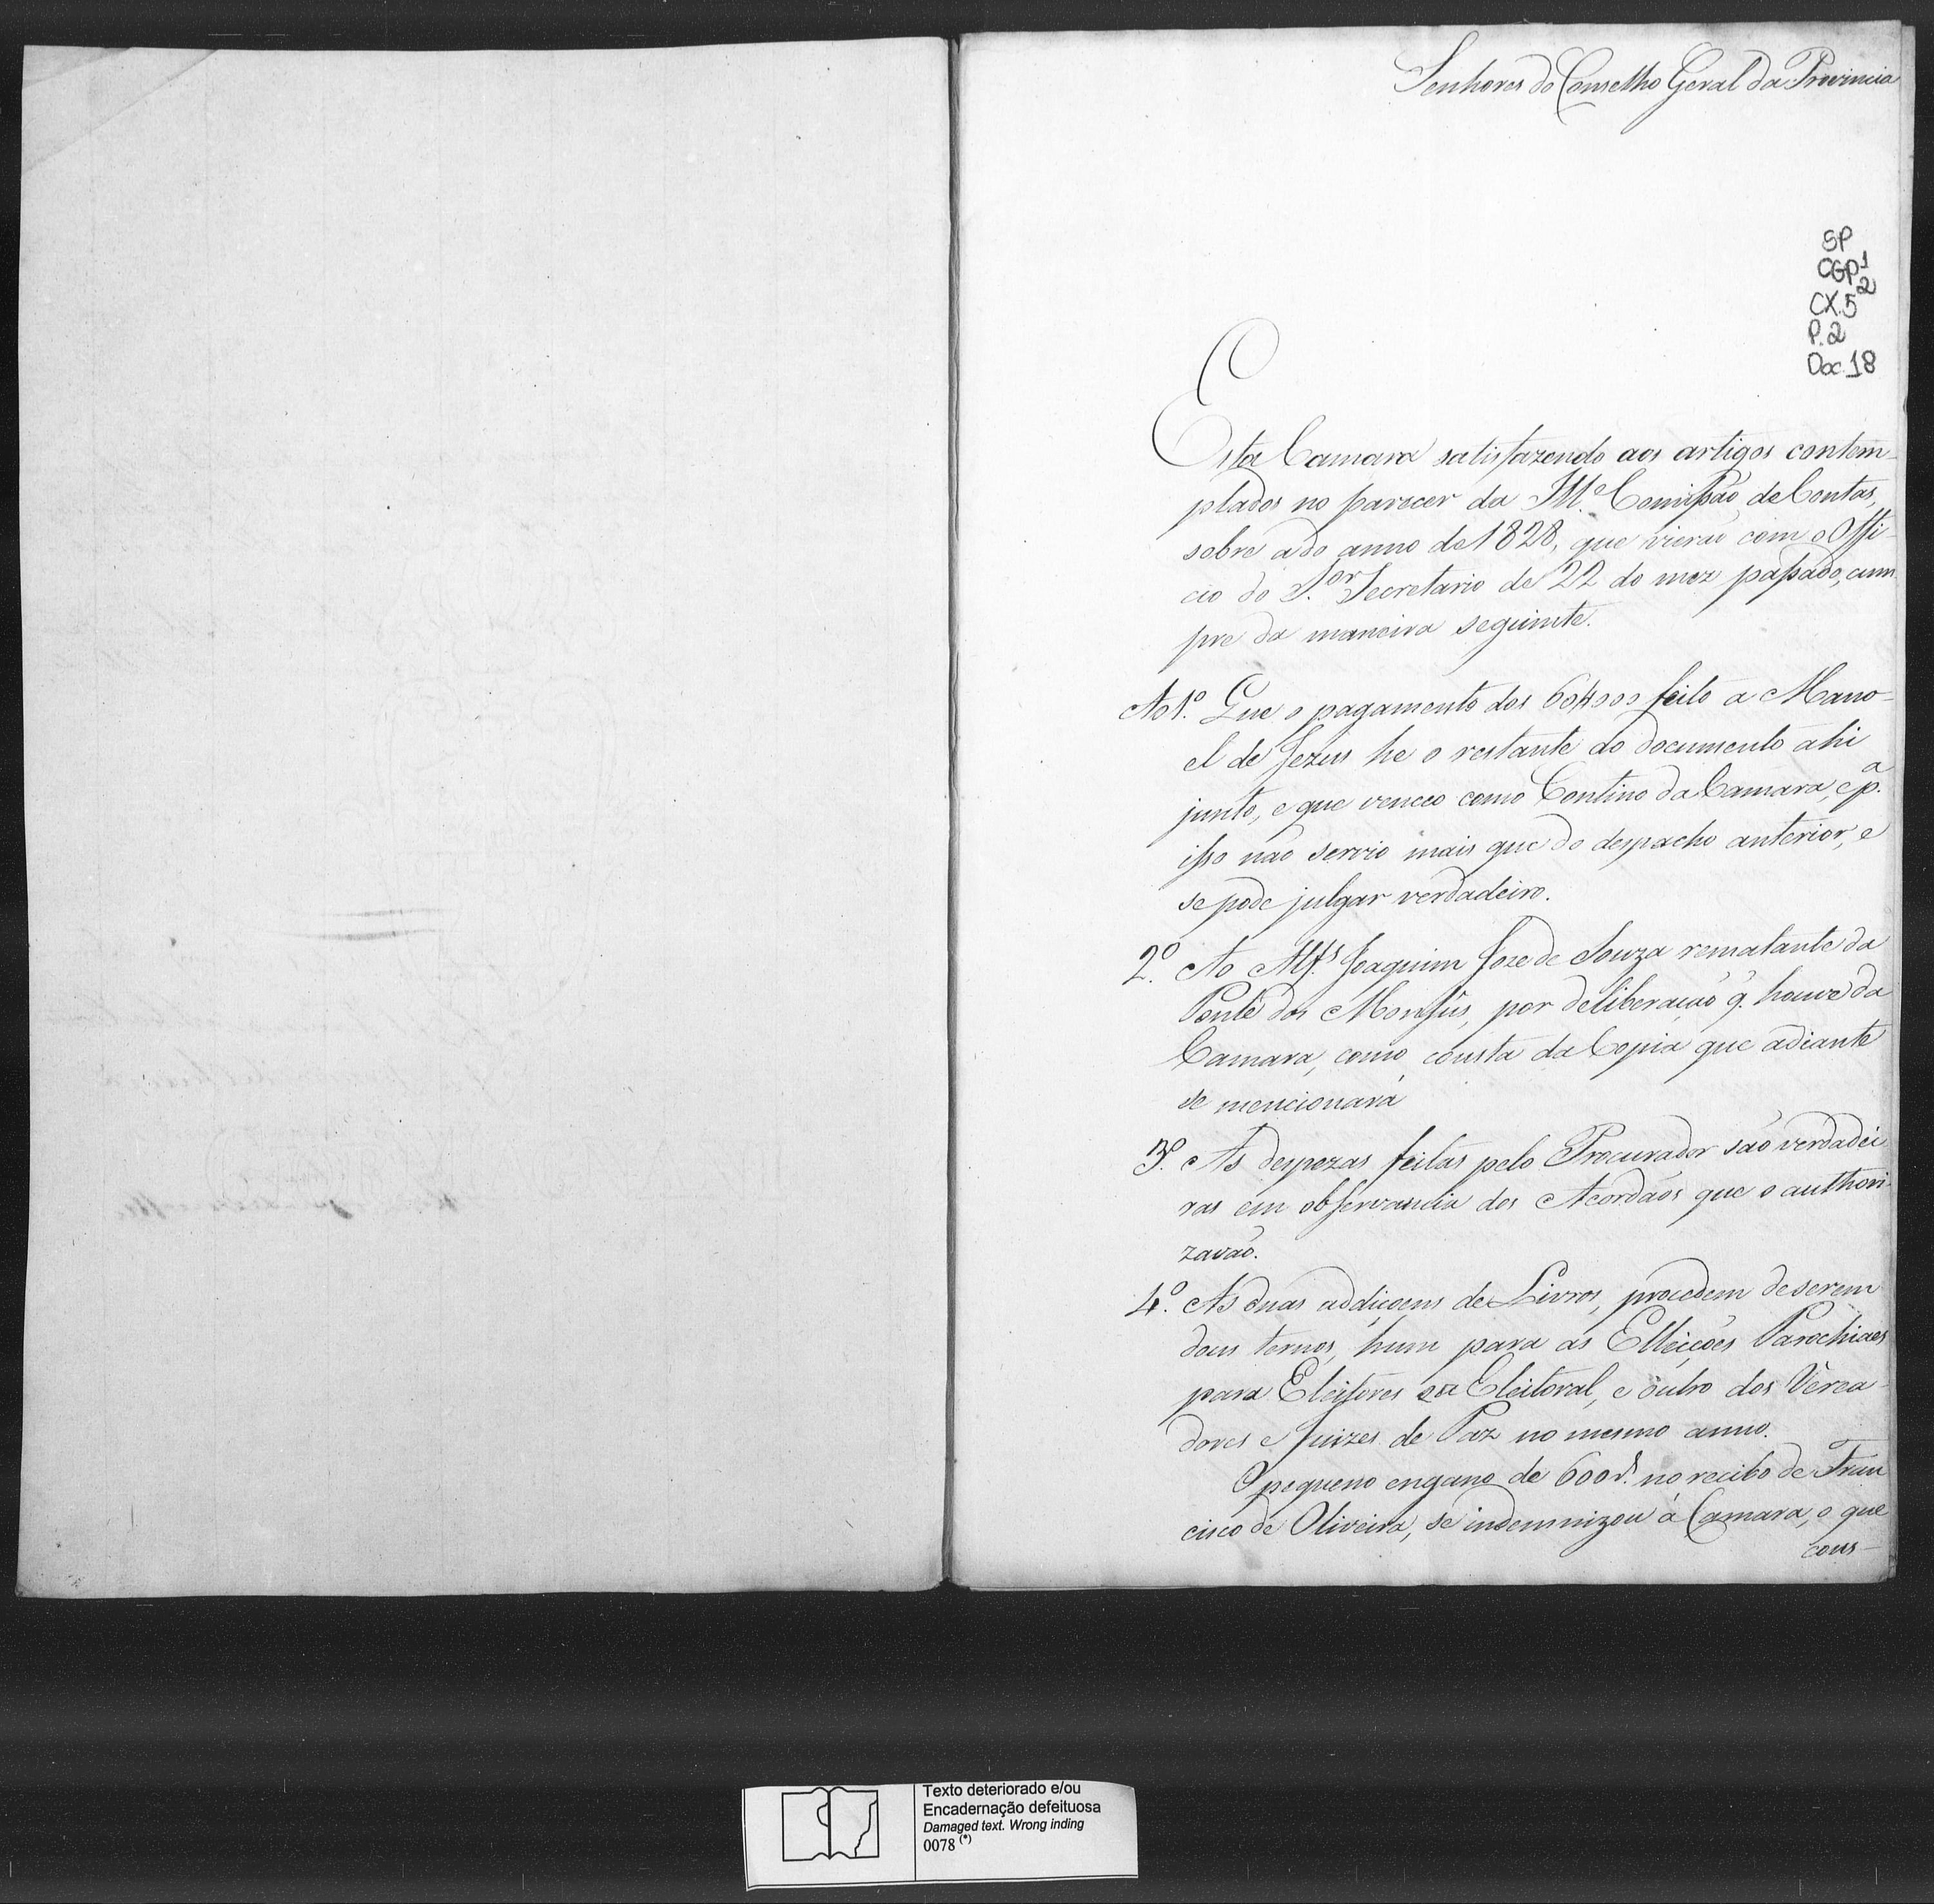 Senhores do Conselho Geral da Provincia
SP
CGP1
CX.5 2
P.2
Doc.18
Esta Camara satisfazendo aos artigos contem-
plados no parecer da Ill.e Comissão de Contas,
sobre a do anno de 1828, que vierão com o Offi-
cio do S.or Secretario de 22 do mez passado, cum
pre da maneira seguinte.
Ao 1.º Que o pagamento dos feito a Mano-
el de Jezus he o restante do documento ahi
junto, e que venceo como Contino da Camara, e p.a
isso não servio mais que do despacho anterior, e
se pode julgar verdadeiro.
2.º Ao Alf.s Joaquim Joze de Souza rematante da
Ponte dos por deliberação q. houve da
Camara, como consta da Copia que adiante
se mencionará
3.º As despezas feitas pelo Procurador são verdadei
ras em observancia dos Acordãos que o authori-
zavão.
4.º As duas addiçoens de Livros, procedem de serem
dous ternos, hum para as Elleições Parochiaes
para Eleitores Eleitoral, e outro dos Verea-
dores e Juizes de Paz no mesmo anno.
O pequeno engano de 600 r.s no recibo de Fran
cisco de Oliveira, se indemnizou á Camara, o que
cons-
Texto deteriorado e/ou
Encadernação defeituosa
Damaged text. Wrong inding
0078 (*)